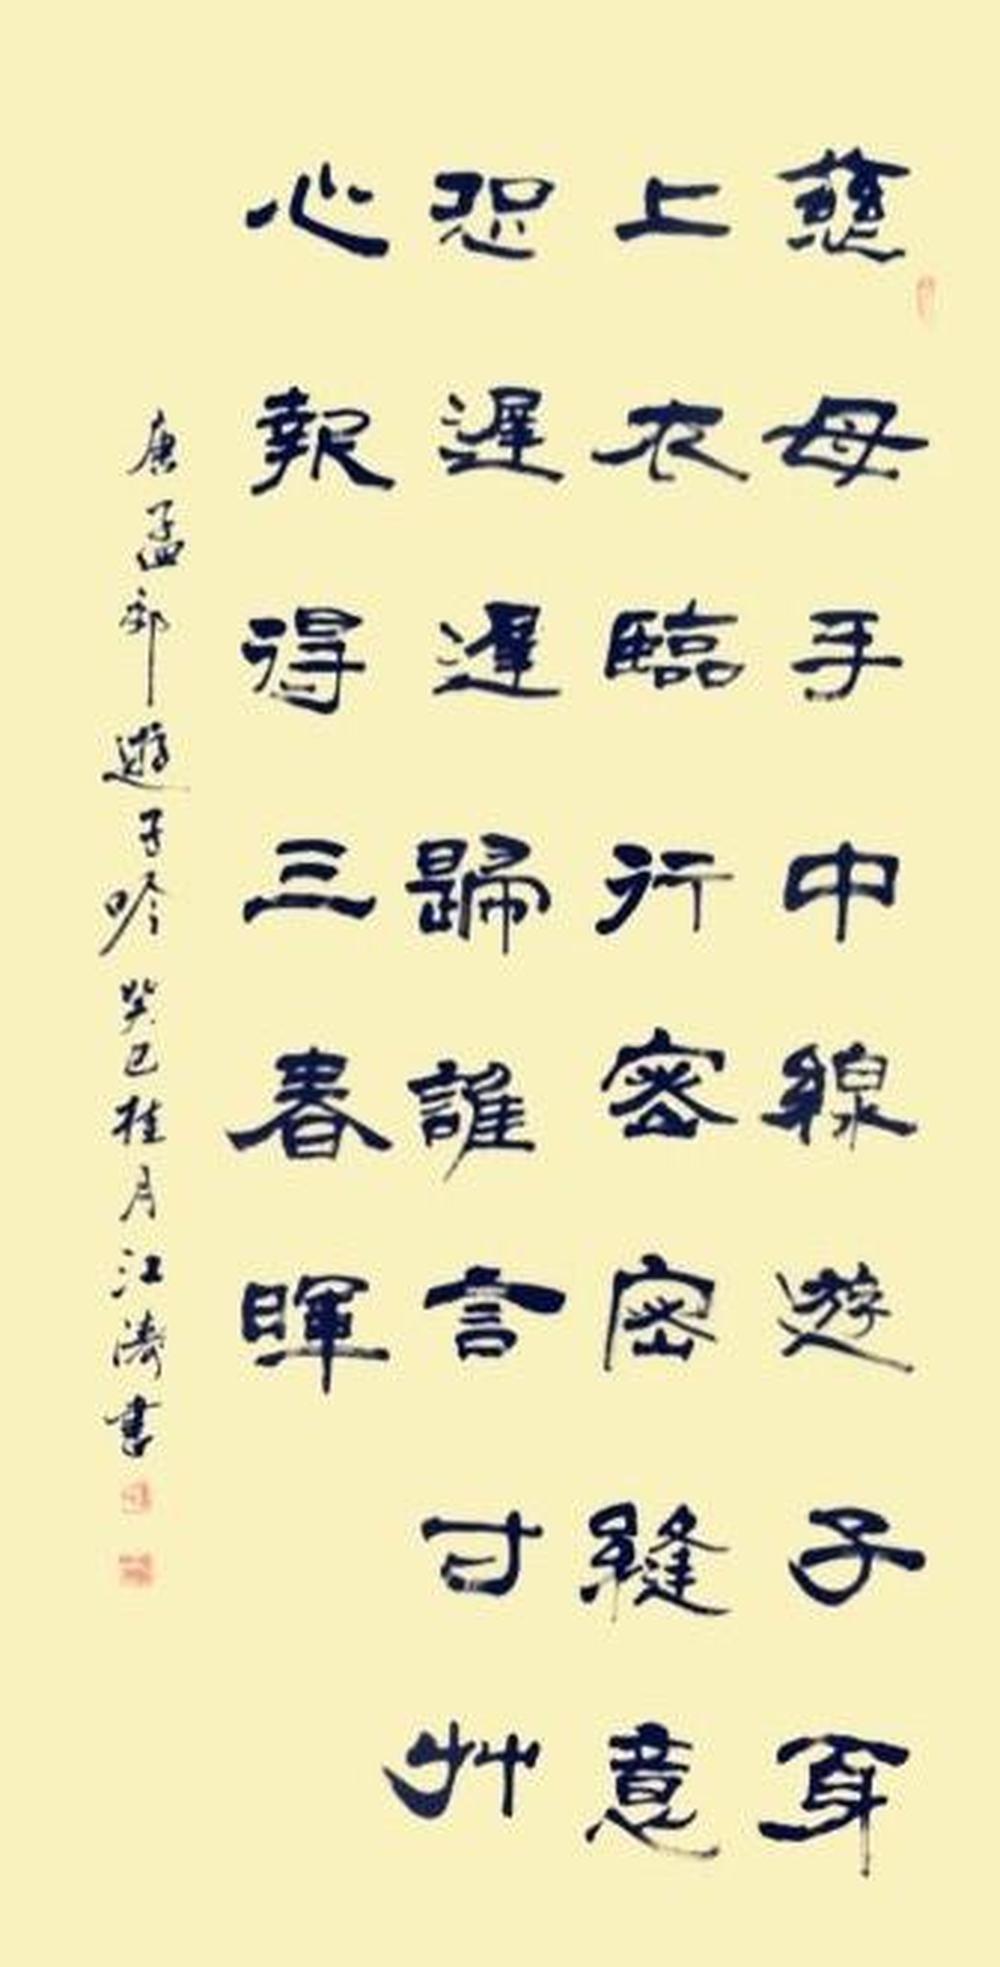 慈母手中線遊子身
上衣臨行密密縫意
恐遲遲歸誰言寸艸
心報得三春暉
唐孟郊遊子吟癸巳桂月江濤書